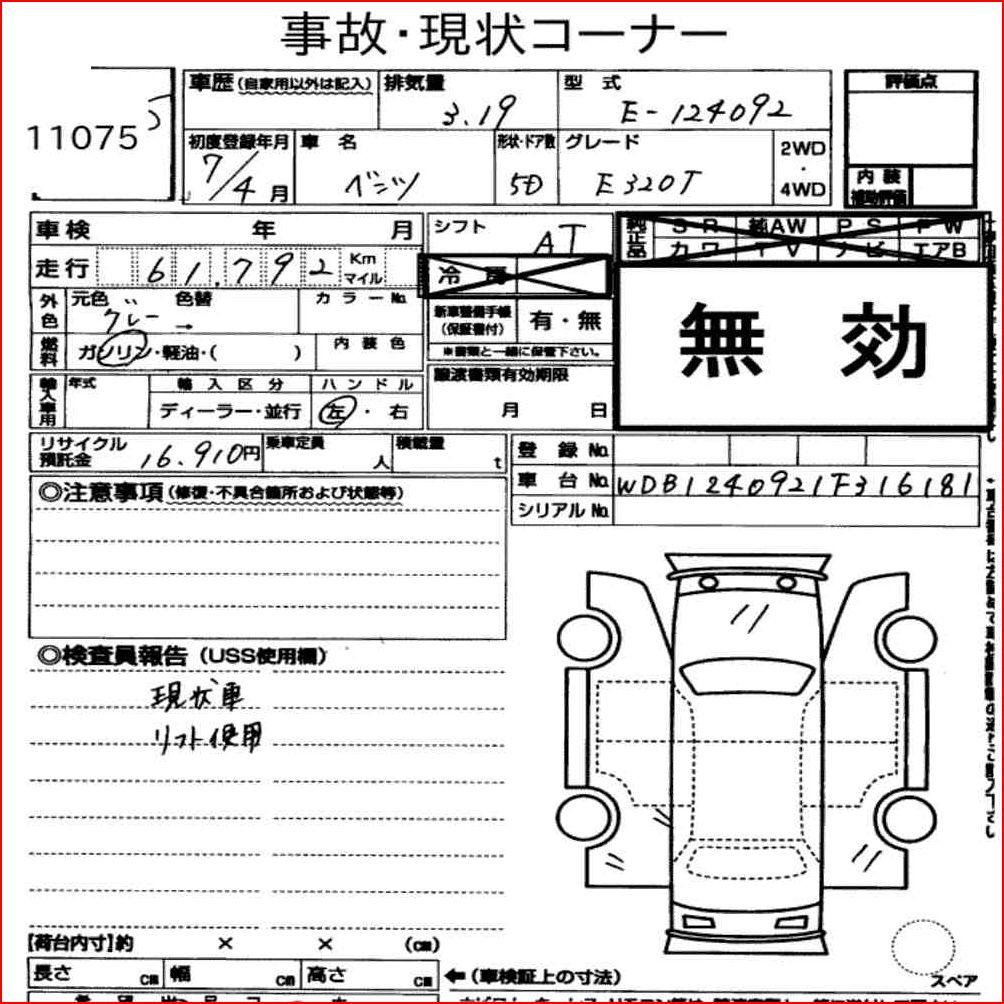 事故・現状コーナー
車歴(自家用以外は記入) 排気量 型式 評価点
3.19 E-124092
11075 5
初度登録年月 車名 形状・ドア数 グレード 2WD・4WD
7/4月 ベンツ 5D E320T
内装補助評価
車検 年 月 シフト AT 純正品 SR 純AW PS PW
走行 61,792 Km マイル 冷房 カワ TV ナビ エアB
外色 元色 〃 色替 カラーNo. 新車整備手帳(保証書付) 有・無
グレー → ※書類と一緒に保管下さい。
無効
燃料 ガソリン・軽油・( ) 内装色
輸入車用 年式 輸入区分 ハンドル 譲渡書類有効期限
ディーラー・並行 左・右 月 日
リサイクル預託金 16.910円 乗車定員 人 積載量 t
登録No.
車台No. WDB1240921F316181
シリアルNo.
◎注意事項(修復・不具合箇所および状態等)
◎検査員報告(USS使用欄)
現状車
リフト使用
【荷台内寸】約 × × (cm)
長さ cm 幅 cm 高さ cm ←(車検証上の寸法)
スペア